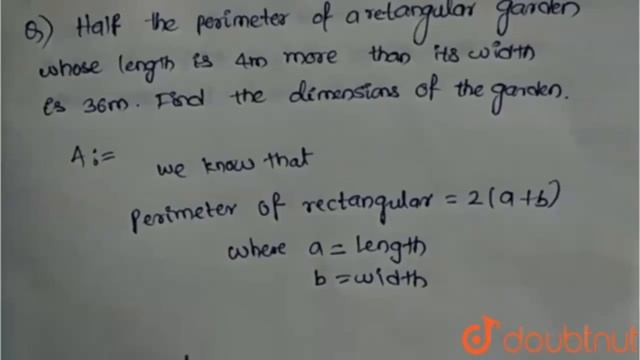 Q) Half the perimeter of a retangular garden
whose length is 4m more than its width
is 36m. Find the dimensions of the garden.
A:=
we know that
Perimeter of rectangular = 2(a+b)
where a = length
b = width
doubtnut